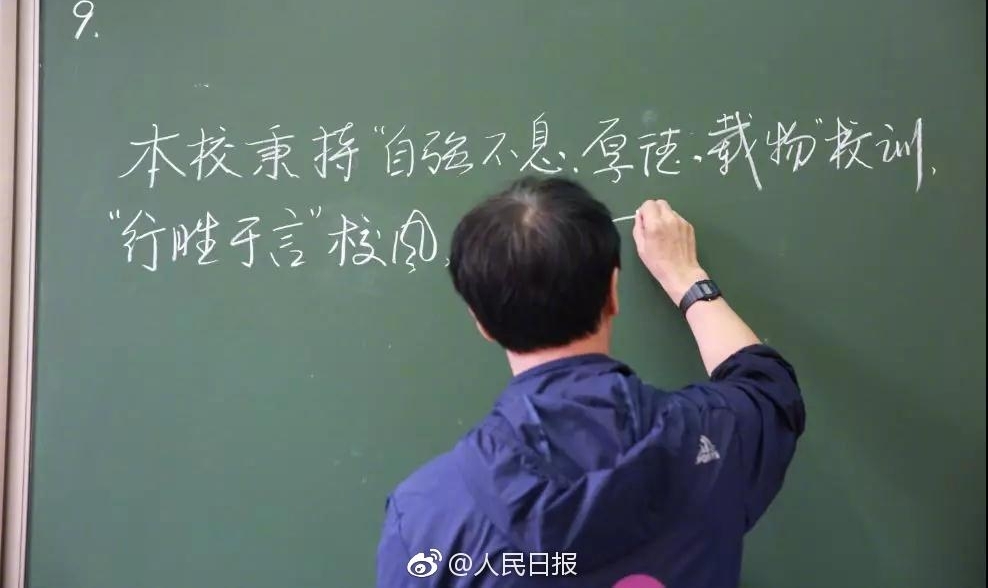 9.
本校秉持“自强不息、厚德、载物”校训,
“行胜于言”校风,
@人民日报